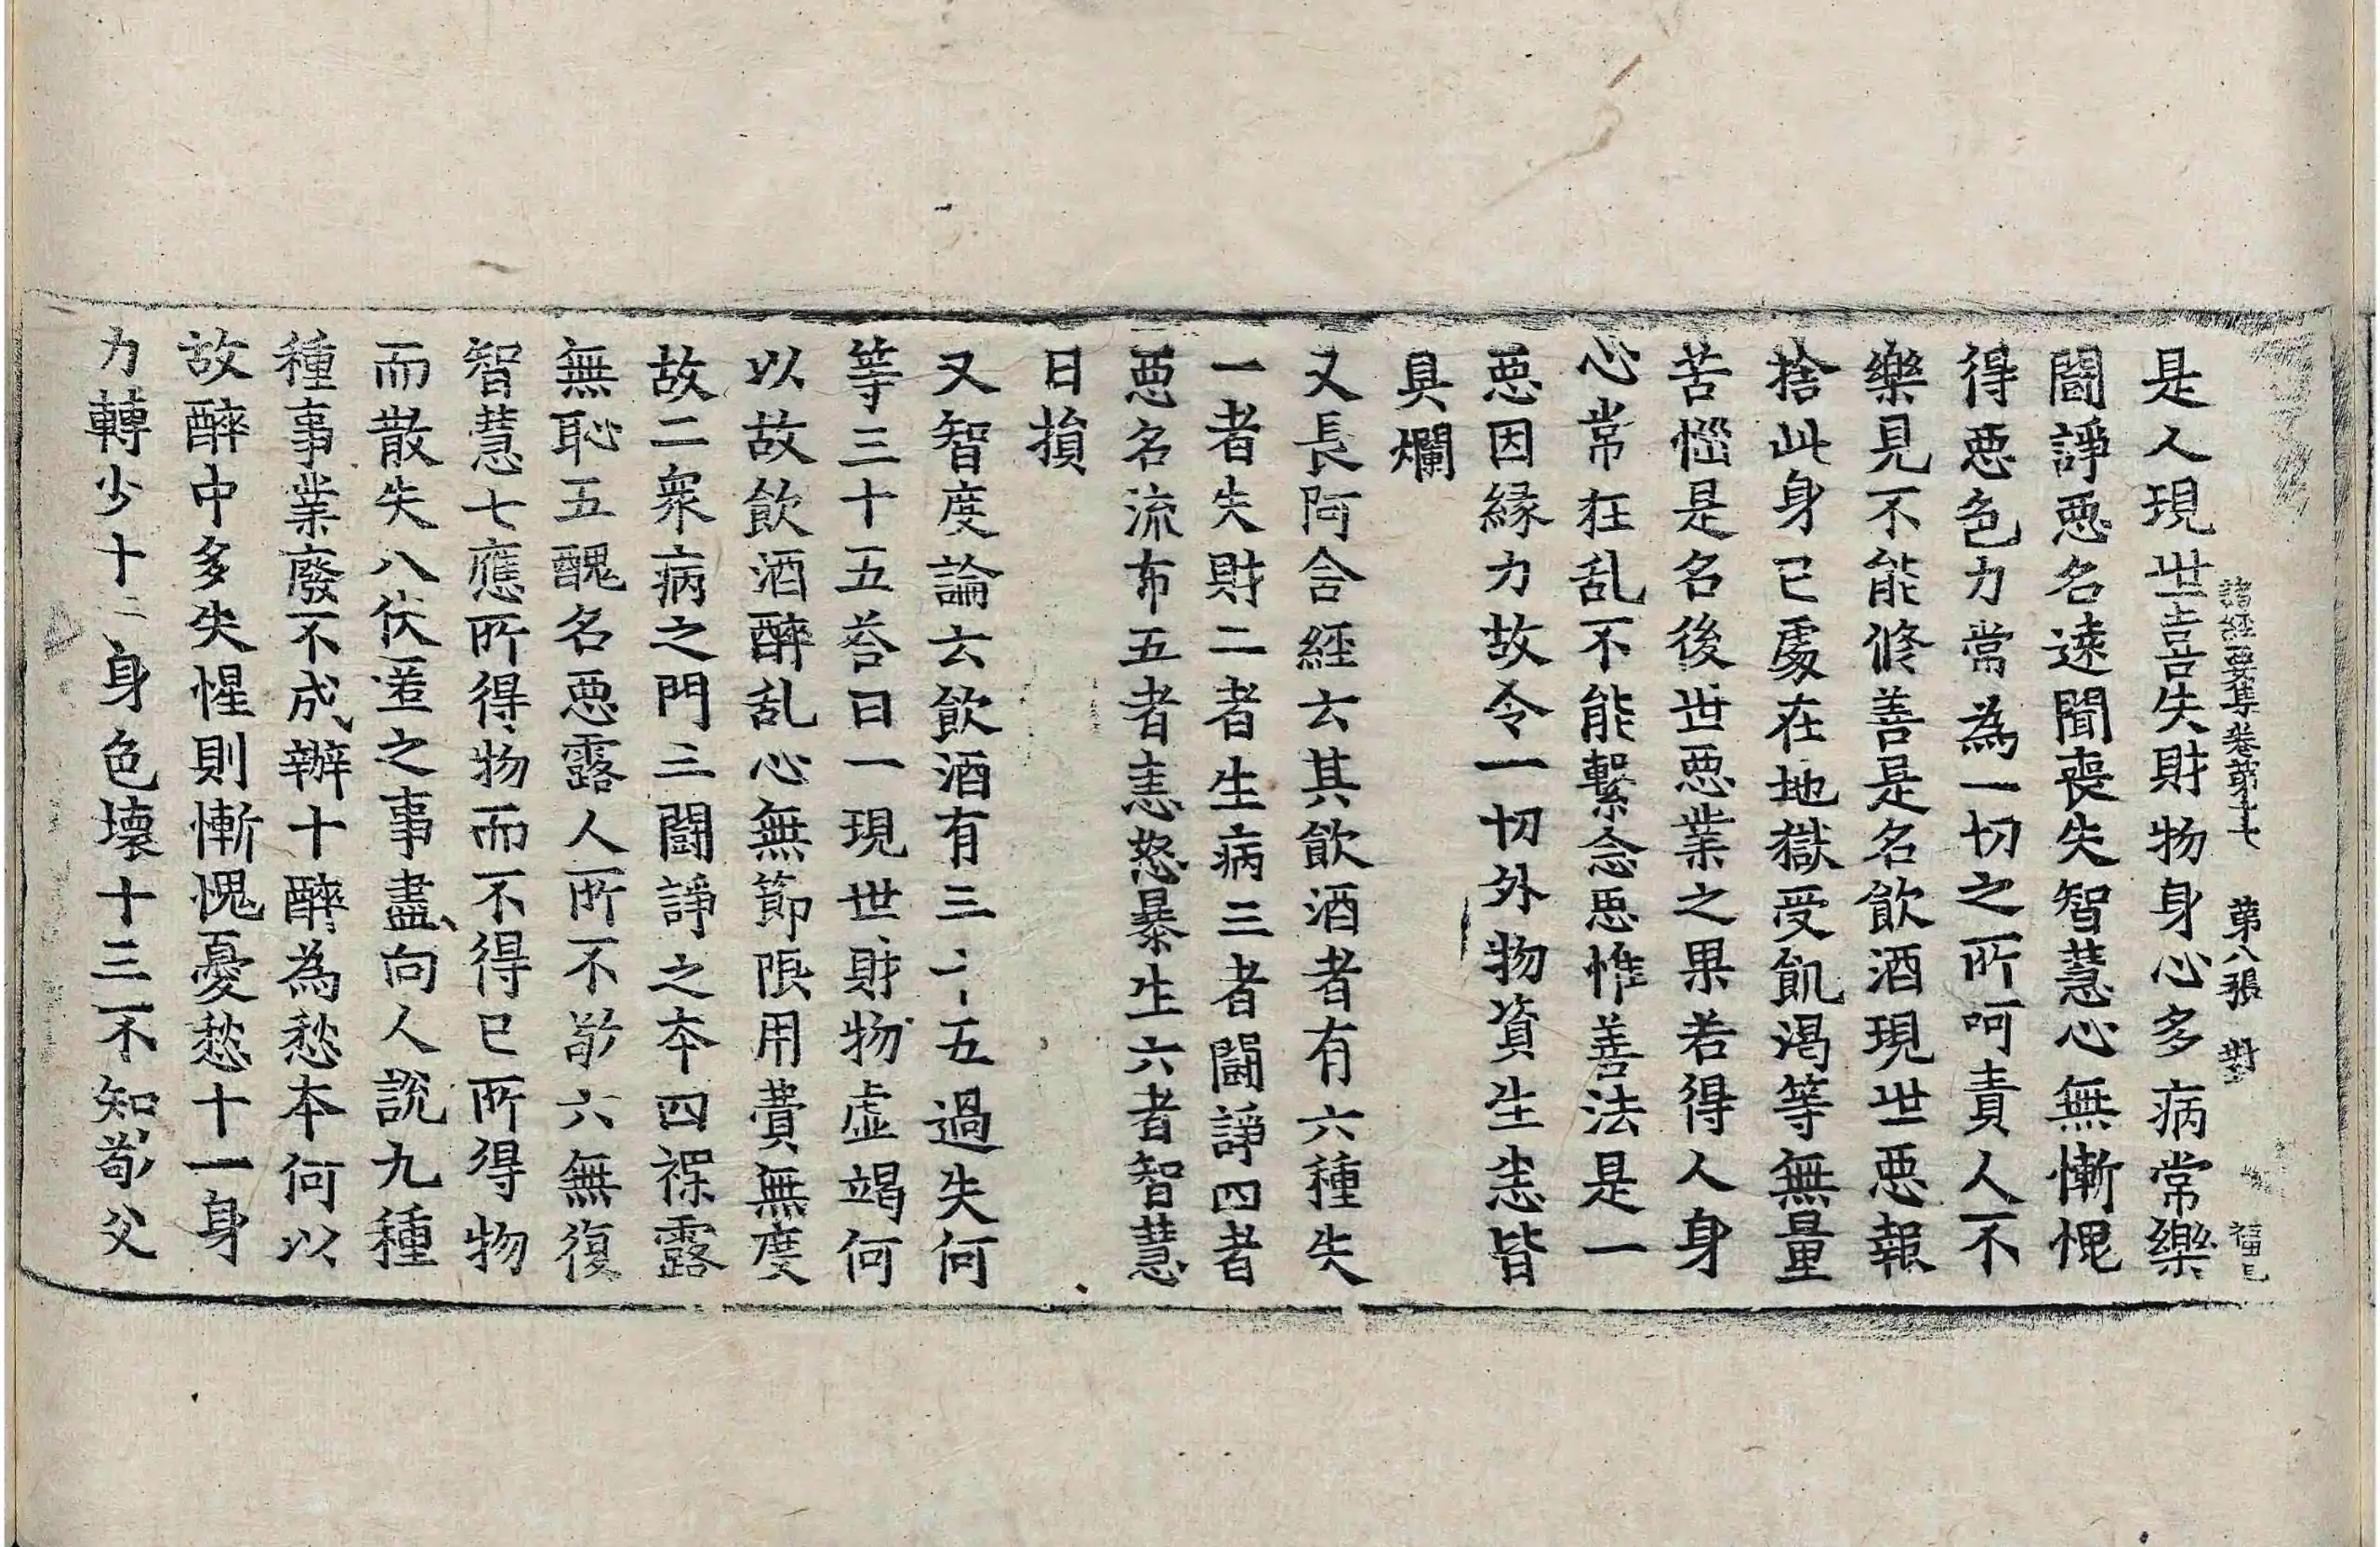 諸經要集卷第十七 第八張 對
是人現世喜失財物身心多病常樂
鬪諍惡名遠聞喪失智慧心無慚愧
得惡色力常為一切之所呵責人不
樂見不能修善是名飲酒現世惡報
捨此身已處在地獄受飢渴等無量
苦惱是名後世惡業之果若得人身
心常狂乱不能繫念思惟善法是一
惡因緣力故令一切外物資生恚皆
臭爛
又長阿含經云其飲酒者有六種失
一者失財二者生病三者鬪諍四者
惡名流布五者恚怒暴生六者智慧
日損
又智度論云飲酒有三十五過失何
等三十五荅曰一現世財物虛竭何
以故飲酒醉乱心無節限用費無度
故二衆病之門三鬪諍之本四裸露
無恥五醜名惡露人所不敬六無復
智慧七應所得物而不得已所得物
而散失八伏匿之事盡向人說九種
種事業廢不成辦十醉為愁本何以
故醉中多失惺則慚愧憂愁十一身
力轉少十二身色壞十三不知敬父